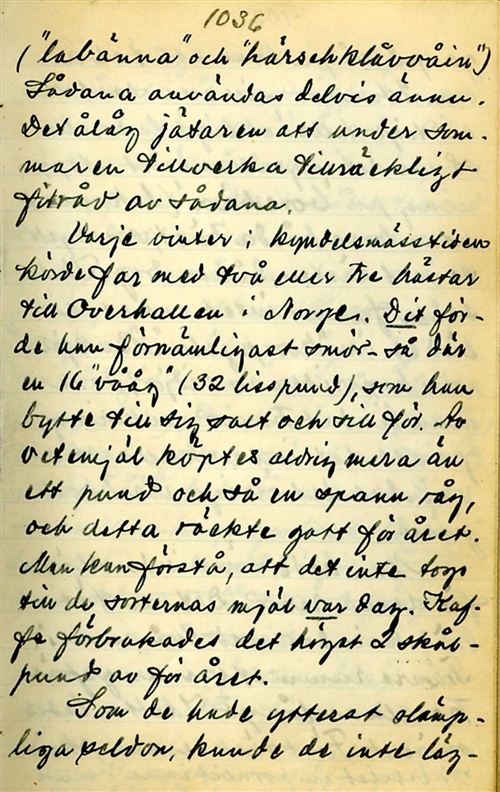 1036
("labänna" och "härsehklåvvåin")
Sådana användas delvis ännu.
Det ålåg jätaren att under som-
maren tillverka tillräckligt
förråd av sådana.
Varje vinter i kyndelsmässtiden
körde far med två eller tre hästar
till Overhallen i Norge. Dit för-
de han förnämligast smör - så där
en 16 "vååg" (32 lisspund), som han
bytte till sig salt och sill för. Av
vetemjöl köptes aldrig mera än
ett pund och så en spann råg,
och detta räckte gott för året.
Man kan förstå, att det inte togs
till de sorternas mjöl var dag. Kaf-
fe förbrukades det högst 2 skål-
pund av för året.
Som de hade ytterst olämp-
liga seldon, kunde de inte läg-